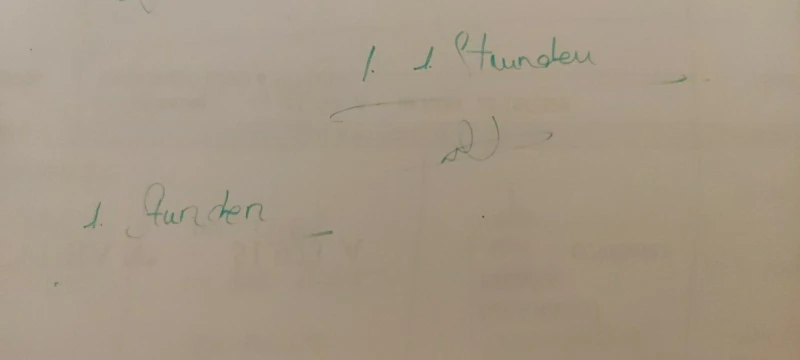 1. 1. Stunden
1. Stunden